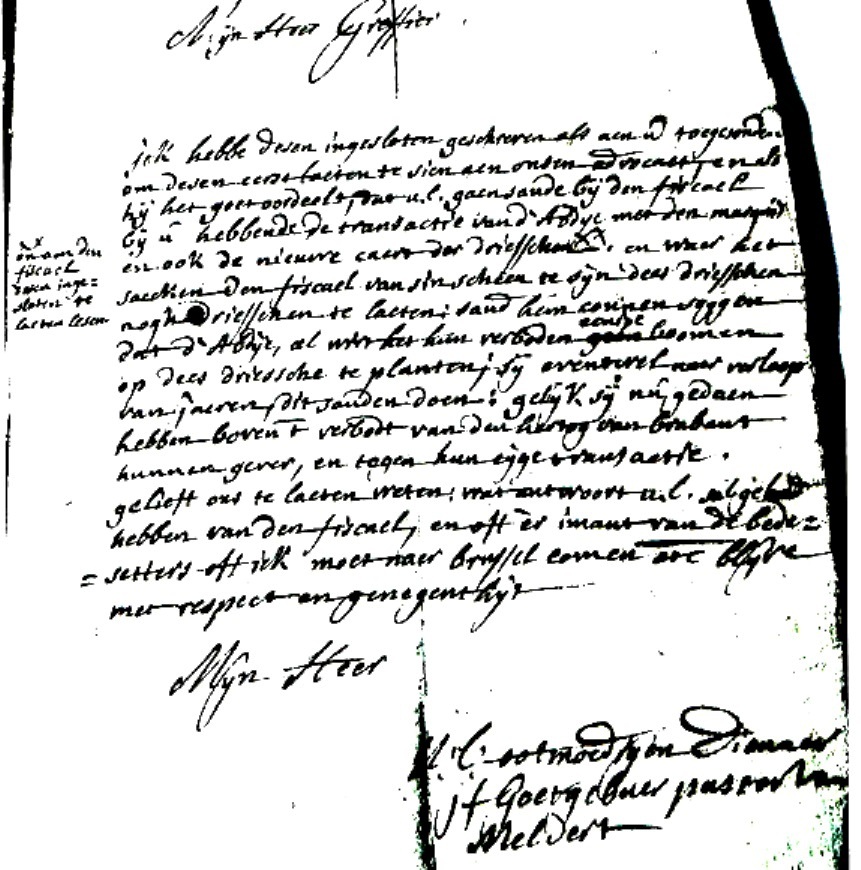 Mijn Heer Greffier.
jck hebbe desen ingesloten geschreven als aen u toegesonden
om desen eerst laeten te sien aen onsen advocaet, en als
hij het goet oordeelt, dat u.l. gaen saude bij den fiscael
bij u hebbende de transactie van d'Abdije met den marquis
en ook de nieuwe caert der driesschen. en waer het
saecken den fiscael van sin scheen te sijn dees driesschen
nogh driesschen te laeten; saud hem connen seggen
dat d'Abdije, al wirt het hun verboden eenige boomen
op dees driessche te planten; sij eventwel naer verloop
van jaeren, dit sauden doen: gelijk sij nu gedaen
hebben boven t verbodt van den hertog van brabant
hunnen gever, en tegen hun eyge transactie.
gelieft ons te laeten weten: wat antwoort u.l. sal gehadt
hebben van den fiscael, en oft er imant van de bede=
=setters oft ick moet naer brussel comen etc blijve
met respect en genegenthijt
Mijn Heer
U.l. ootmoedigen Dienaer
jf Goetgebuer pastor van
Meldert
en aen den
fiscael
desen inge=
sloten te
laeten lesen